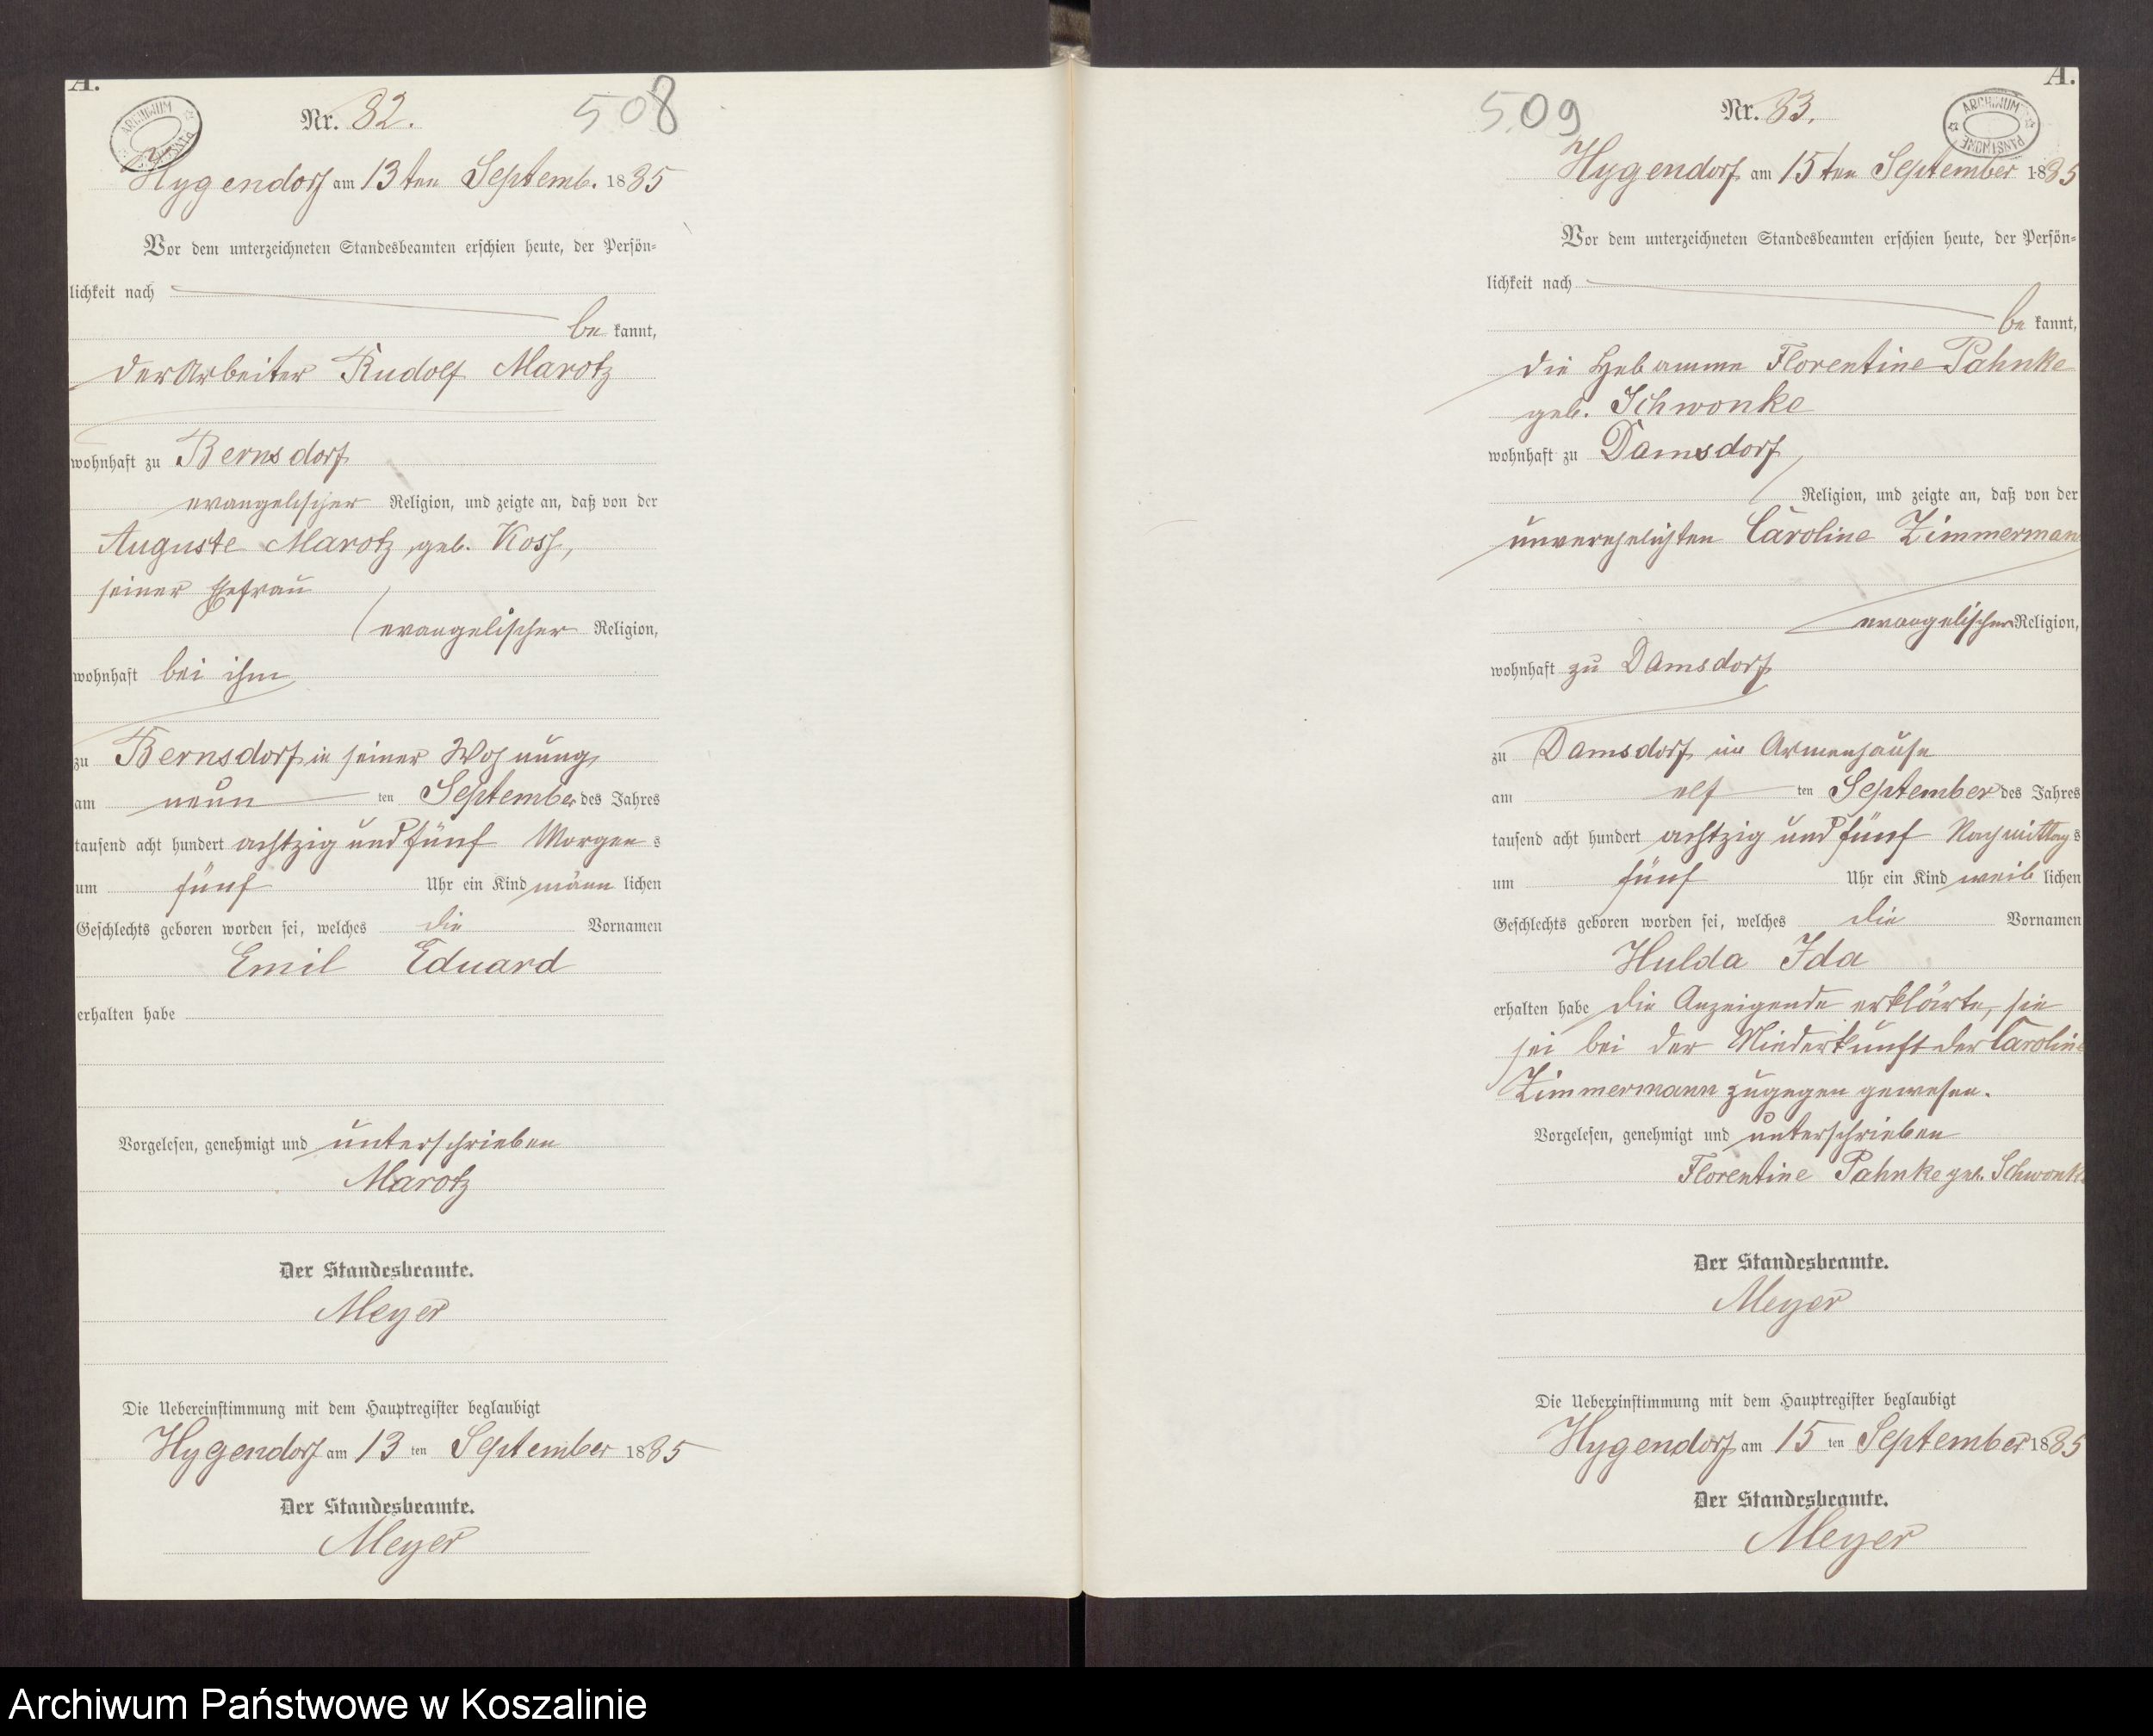 A.
ARCHIWUM PAŃSTWOWE
Nr. 82.
508
Hygendorf am 13ten Septemb. 1885
Vor dem unterzeichneten Standesbeamten erschien heute, der Persön=
lichkeit nach
be kannt,
der Arbeiter Rudolf Marotz
wohnhaft zu Bernsdorf
evangelischer Religion, und zeigte an, daß von der
Auguste Marotz, geb. Koss,
seiner Ehefrau
evangelischer Religion,
wohnhaft bei ihm
zu Bernsdorf in seiner Wohnung,
am neun ten September des Jahres
tausend acht hundert achtzig und fünf Morgen s
um fünf Uhr ein Kind männ lichen
Geschlechts geboren worden sei, welches die Vornamen
Emil Eduard
erhalten habe
Vorgelesen, genehmigt und unterschrieben
Marotz
Der Standesbeamte.
Meyer
Die Uebereinstimmung mit dem Hauptregister beglaubigt
Hygendorf am 13 ten September 1885
Der Standesbeamte.
Meyer
A.
509
Nr. 83.
ARCHIWUM PAŃSTWOWE
Hygendorf am 15ten September 1885
Vor dem unterzeichneten Standesbeamten erschien heute, der Persön=
lichkeit nach
be kannt,
die Hebamme Florentine Pahnke
geb. Schwonke
wohnhaft zu Damsdorf
Religion, und zeigte an, daß von der
unverehelichten Caroline Zimmerman
evangelischer Religion,
wohnhaft zu Damsdorf
zu Damsdorf im Armenhause
am elf ten September des Jahres
tausend acht hundert achtzig und fünf Nachmittag s
um fünf Uhr ein Kind weib lichen
Geschlechts geboren worden sei, welches die Vornamen
Hulda Ida
erhalten habe die Anzeigende erklärte, sie
sei bei der Niederkunft der Caroline
Zimmermann zugegen gewesen.
Vorgelesen, genehmigt und unterschrieben
Florentine Pahnke geb. Schwonke
Der Standesbeamte.
Meyer
Die Uebereinstimmung mit dem Hauptregister beglaubigt
Hygendorf am 15 ten September 1885
Der Standesbeamte.
Meyer
Archiwum Państwowe w Koszalinie